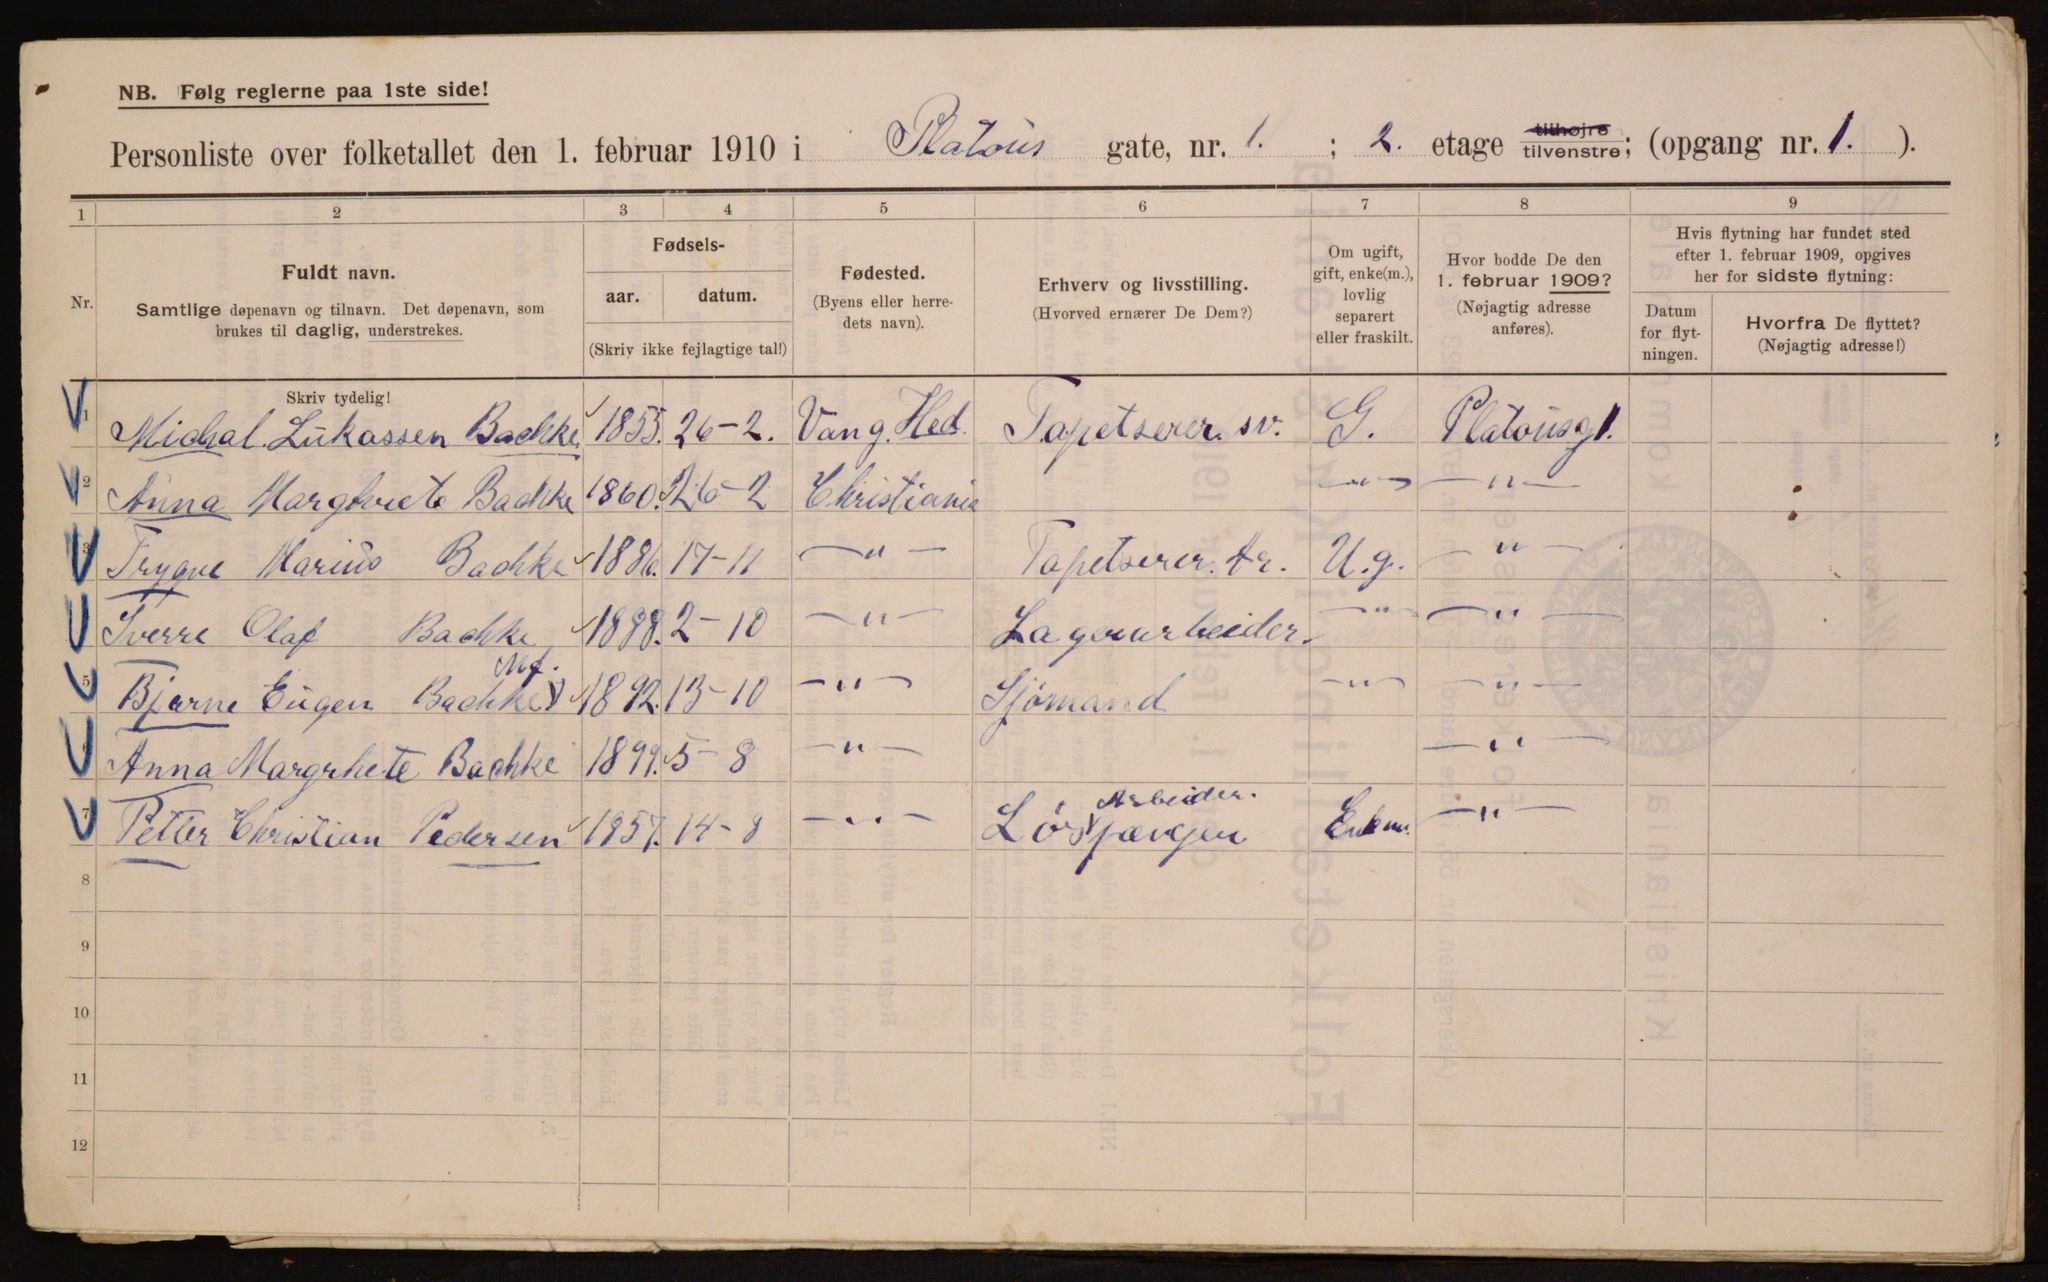 NB. Følg reglerne paa 1ste side!
Personliste over folketallet den 1. februar 1910 i Platous gate, nr. 1. ; 2. etage tilhøjre tilvenstre; (opgang nr. 1. ).
1 2 3 4 5 6 7 8 9
Nr.
Fuldt navn.
Samtlige døpenavn og tilnavn. Det døpenavn, som
brukes til daglig, understrekes.
Fødsels-
aar. datum.
(Skriv ikke fejlagtige tal!)
Fødested.
(Byens eller herre-
dets navn).
Erhverv og livsstilling.
(Hvorved ernærer De Dem?)
Om ugift,
gift, enke(m.),
lovlig
separert
eller fraskilt.
Hvor bodde De den
1. februar 1909?
(Nøjagtig adresse
anføres).
Hvis flytning har fundet sted
efter 1. februar 1909, opgives
her for sidste flytning:
Datum
for flyt-
ningen.
Hvorfra De flyttet?
(Nøjagtig adresse!)
Skriv tydelig!
1 Michal Lukassen Bachke 1855. 26-2. Vang. Hed. Tapetserer. sv. G. Platousg 1.
2 Anna Margrete Bachke 1860. 26-2 Christiania —"— —"—
3 Trygve Marius Bachke 1886. 17-11 —"— Tapetserer. Ar. U.g. —"—
Sverre Olaf Bachke 1888. 2-10 —"— Lagerarbeider. —"— —"—
5 Bjarne Eugen Bachke 1892. 13-10 —"— Sjømand —"— —"—
6 Anna Margrhete Bachke 1899. 5-8 —"— —"—
7 Petter Christian Pedersen 1857. 14-8 —"— Løs Arbeider. Enkem. —"—
8
9
10
11
12